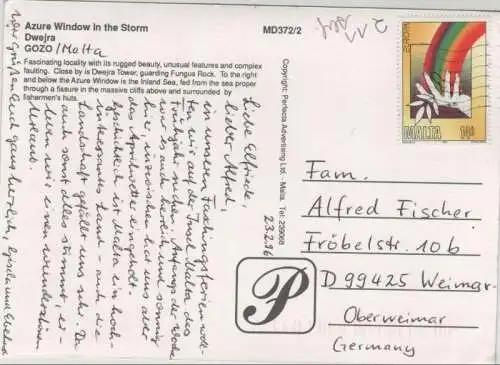 Azure Window in the Storm
Dwejra
GOZO / Malta
MD372/2
Fascinating locality with its rugged beauty, unusual features and complex
faulting. Close by is Dwejra Tower, guarding Fungus Rock. To the right
and below the Azure Window is the Inland Sea, fed from the sea proper
through a fissure in the massive cliffs above and surrounded by
fishermen's huts.
Copyright: Perfecta Advertising Ltd. - Malta. Tel: 239068
EUROPA
MALTA 14c
23.2.96
Liebe Elfriede,
lieber Alfred,
in unseren Faschingsferien woll-
ten wir auf der Insel Malta den
Frühjahr suchen. Anfangs der Woche
war es auch herrlich und sonnig
hier, inzwischen hat uns aber
das Aprilwetter eingeholt.
Geschichtlich ist Malta ein hoch-
interessantes Land - auch die
Landschaft gefällt uns sehr. Da
auch sonst alles stimmt, er-
leben wir einen wunderschönen
Urlaub.
Euch ganz herzlich,
Fam.
Alfred Fischer
Fröbelstr. 10b
D 99425 Weimar-
Oberweimar
Germany
P